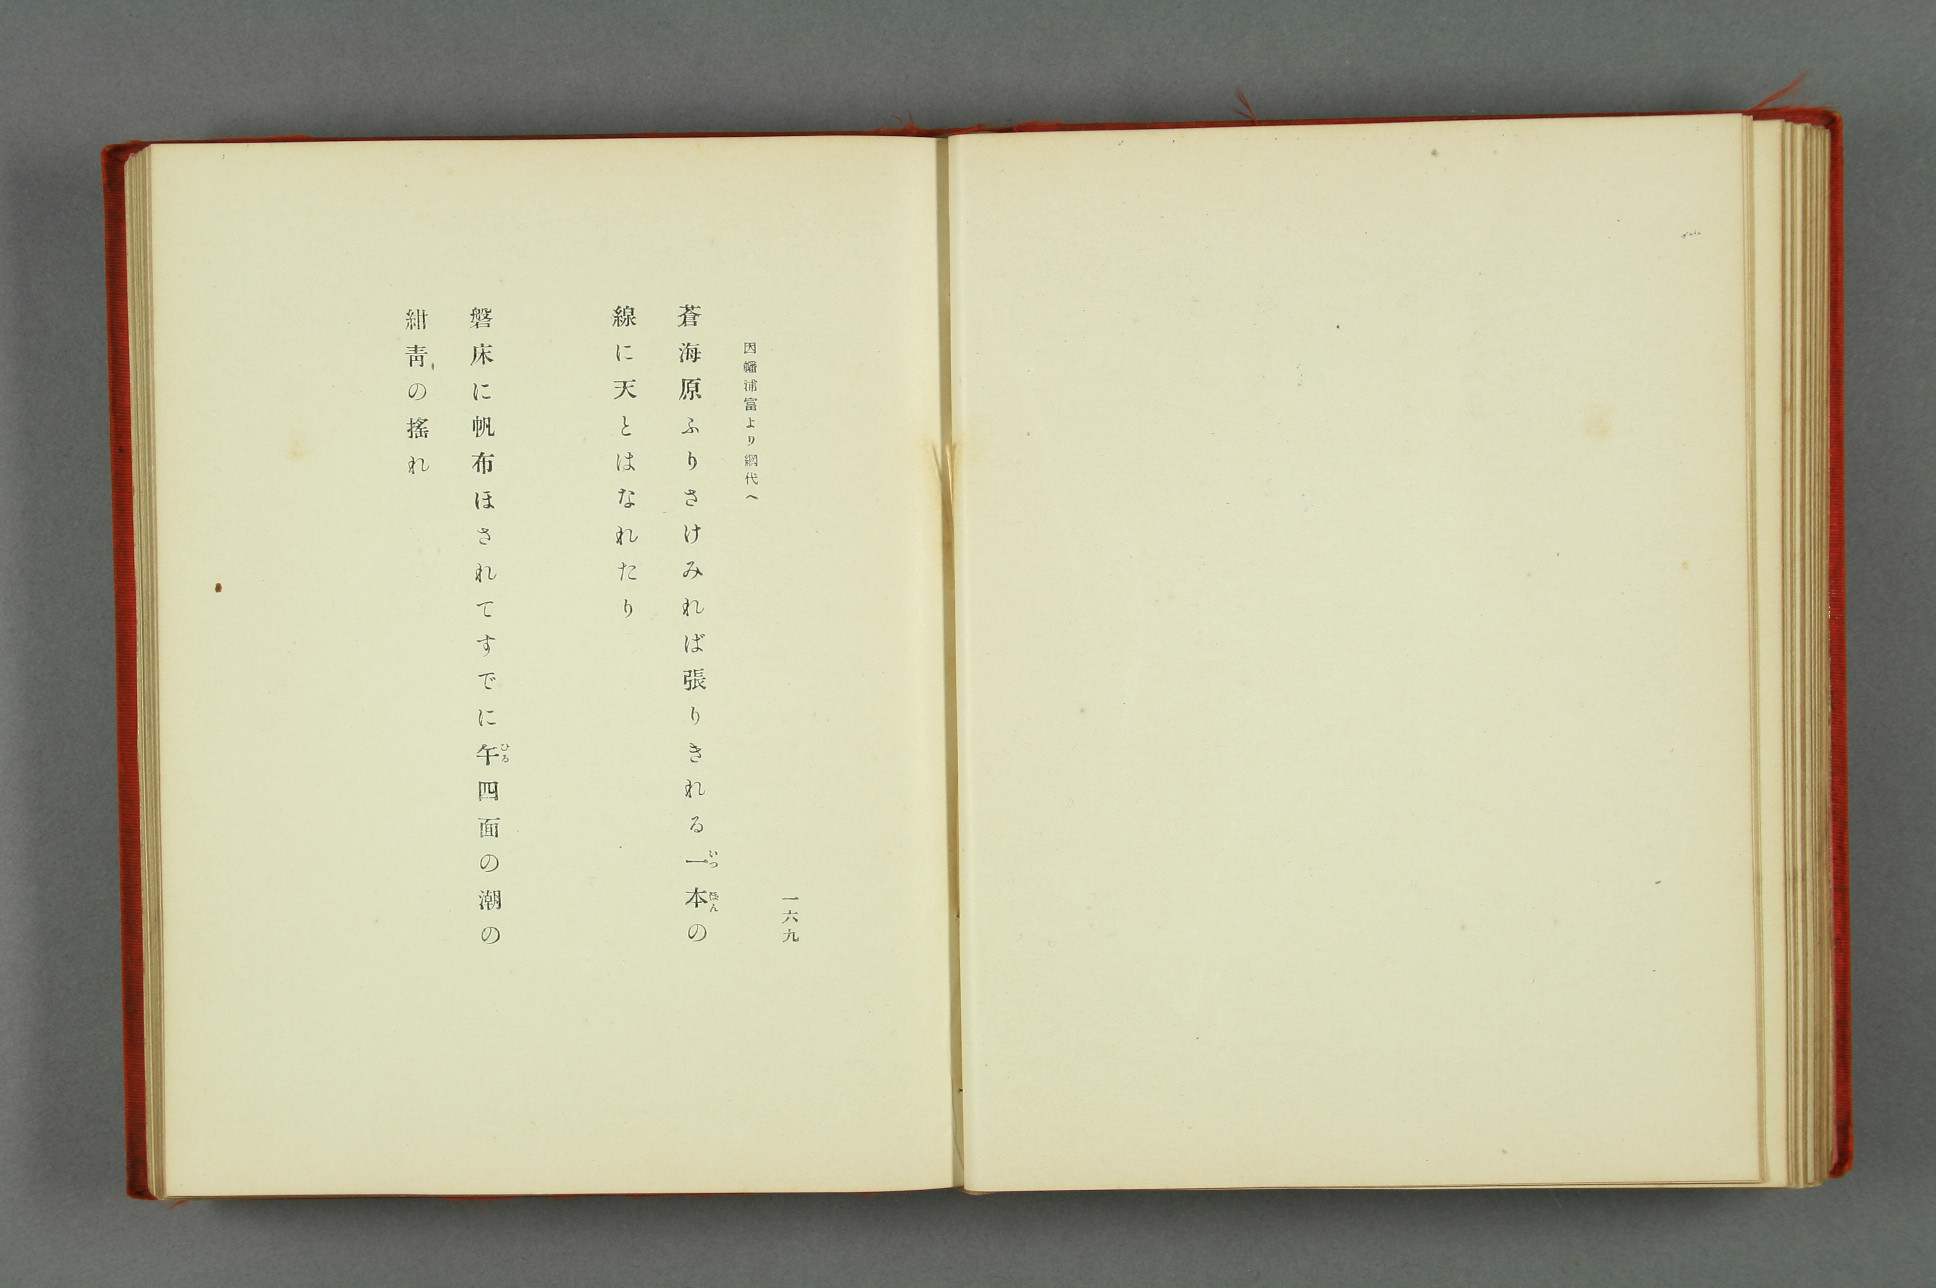 一六九
因幡浦富より網代へ
蒼海原ふりさけみれば張りきれる一本の
線に天とはなれたり
磐床に帆布ほされてすでに午四面の潮の
紺靑の搖れ